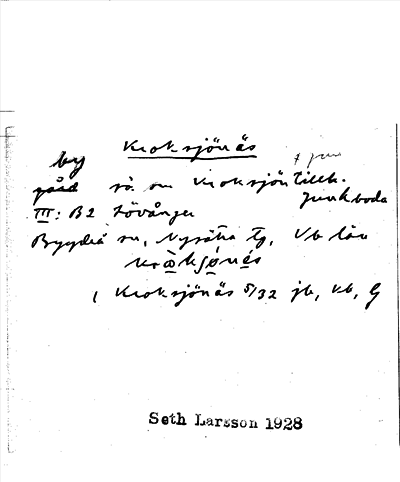 Kroksjönäs
by
gård sö. om Kroksjön tillh. Junkboda
III: B2 Lövånger
Bygdeå sn, Nysätra tg, Vb län
Kroksjönäs 5/32 jb, Vb, G
Seth Larsson 1928